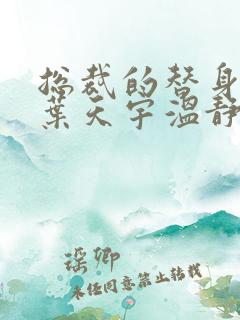 总裁的替身
葉天宇温静
瑶卿
未经同意禁止转载